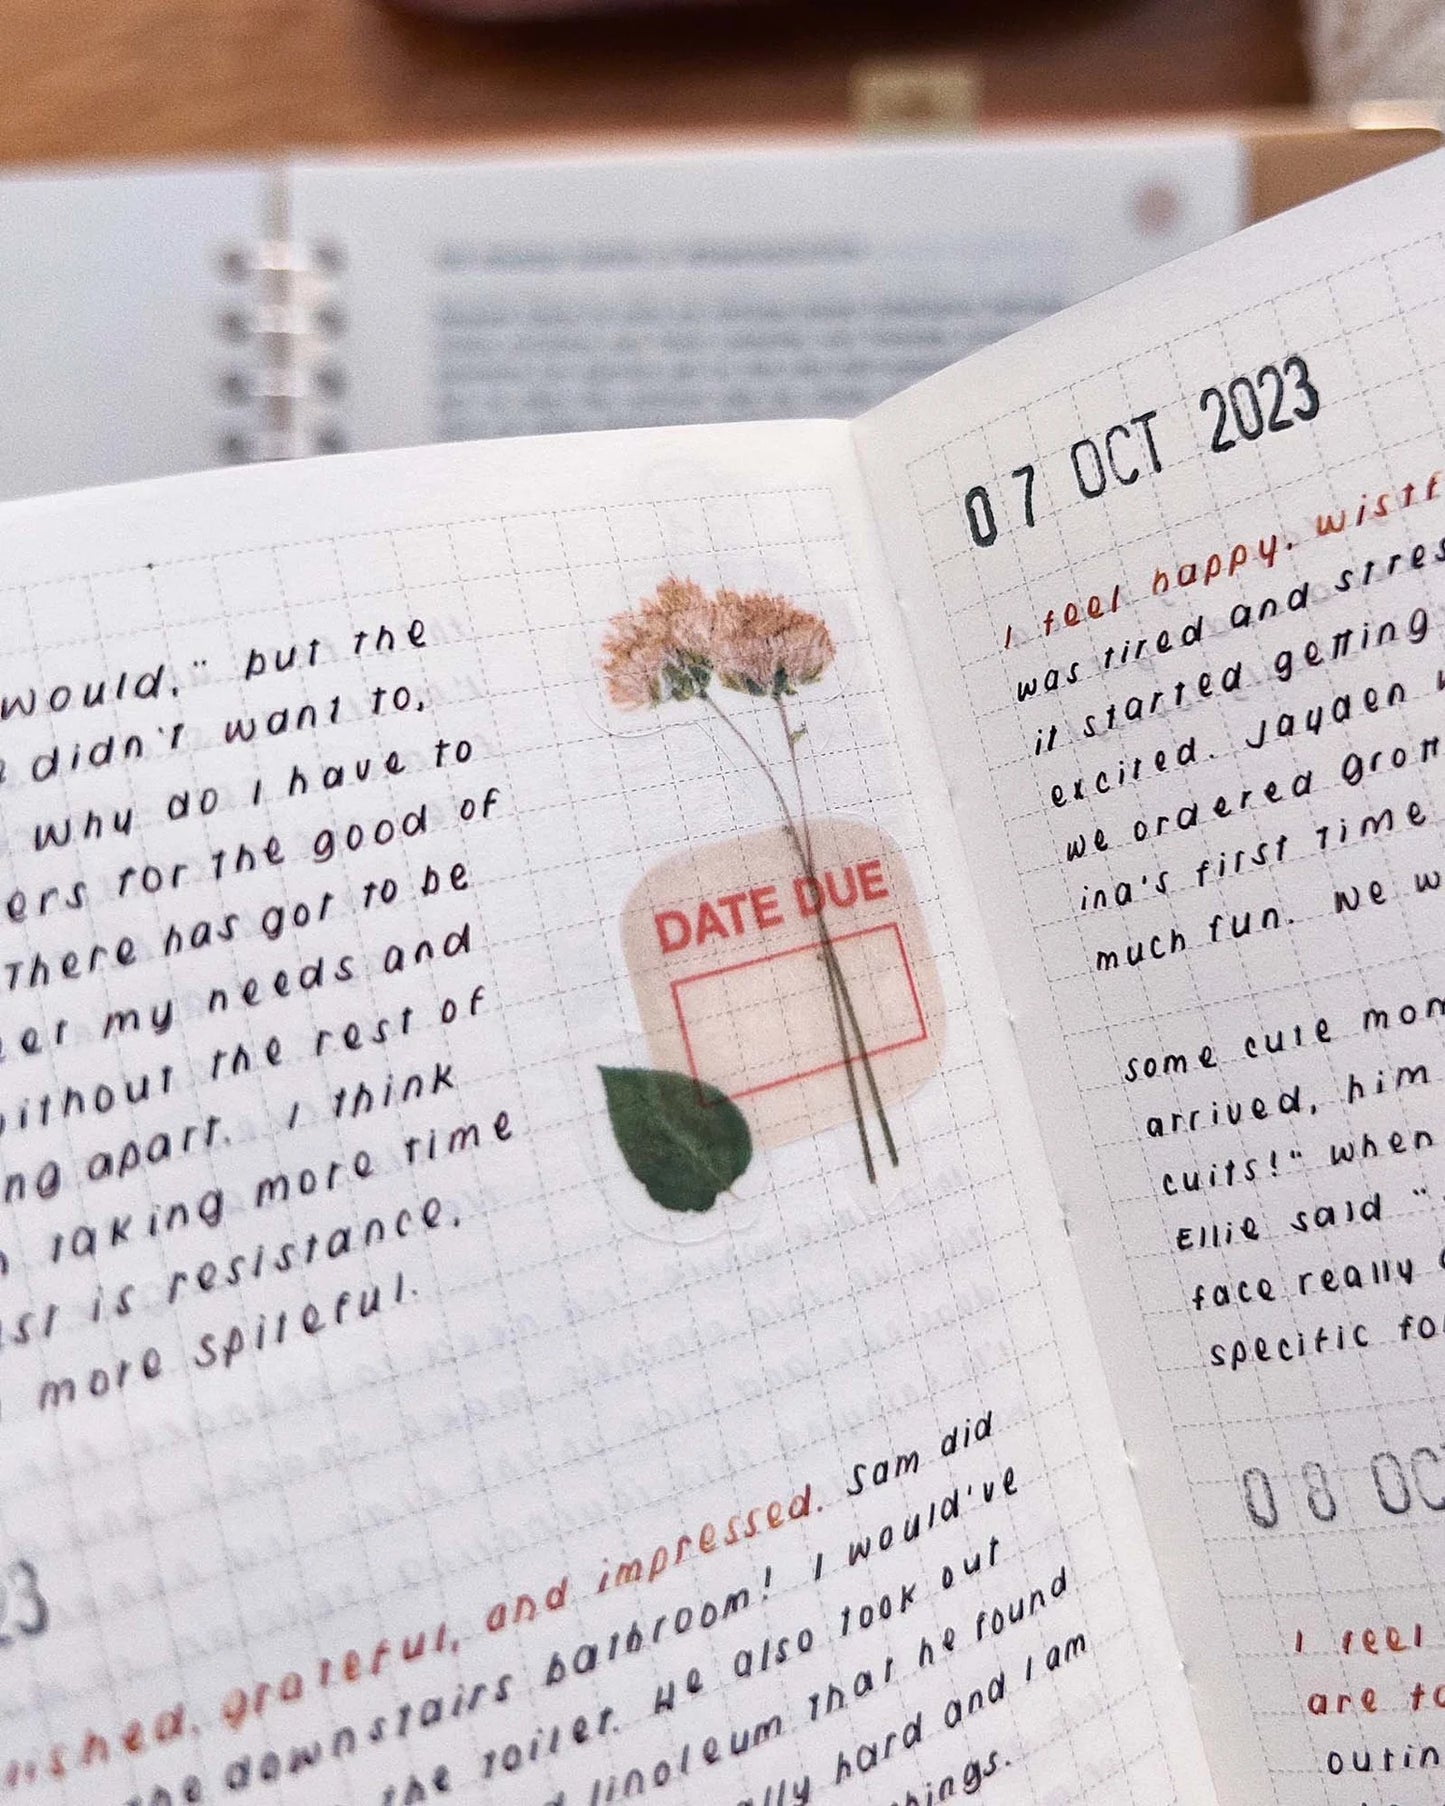 would," but the
didn't want to,
why do I have to
ers for the good of
There has got to be
er my needs and
without the rest of
ng apart. I think
taking more time
st is resistance,
more spiteful.
DATE DUE
23
ished, grateful, and impressed. Sam did
the downstairs bathroom! I would've
the toilet. He also took out
linoleum that he found
lly hard and I am
things.
07 OCT 2023
I feel happy, wistf
was tired and stres
it started getting
excited. Jayden w
we ordered Grott
ina's first time
much fun. We w
some cute mom
arrived, him
cuits!" when
Ellie said "
face really
specific fo
08 OC
I feel
are to
outin